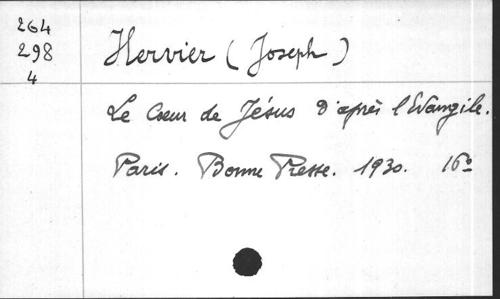 264
298
4
Hervier (Joseph)
Le Cœur de Jésus D'après l'Evangile.
Paris. Bonne Presse. 1930. 16º